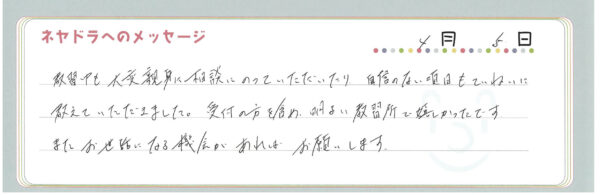 ネヤドラへのメッセージ
4月 5日
教習中も大変親身に相談にのっていただいたり 自信のない項目もていねいに
教えていただきました。受付の方を含め、明るい教習所で嬉しかったです
またお世話になる機会があれば お願いします。